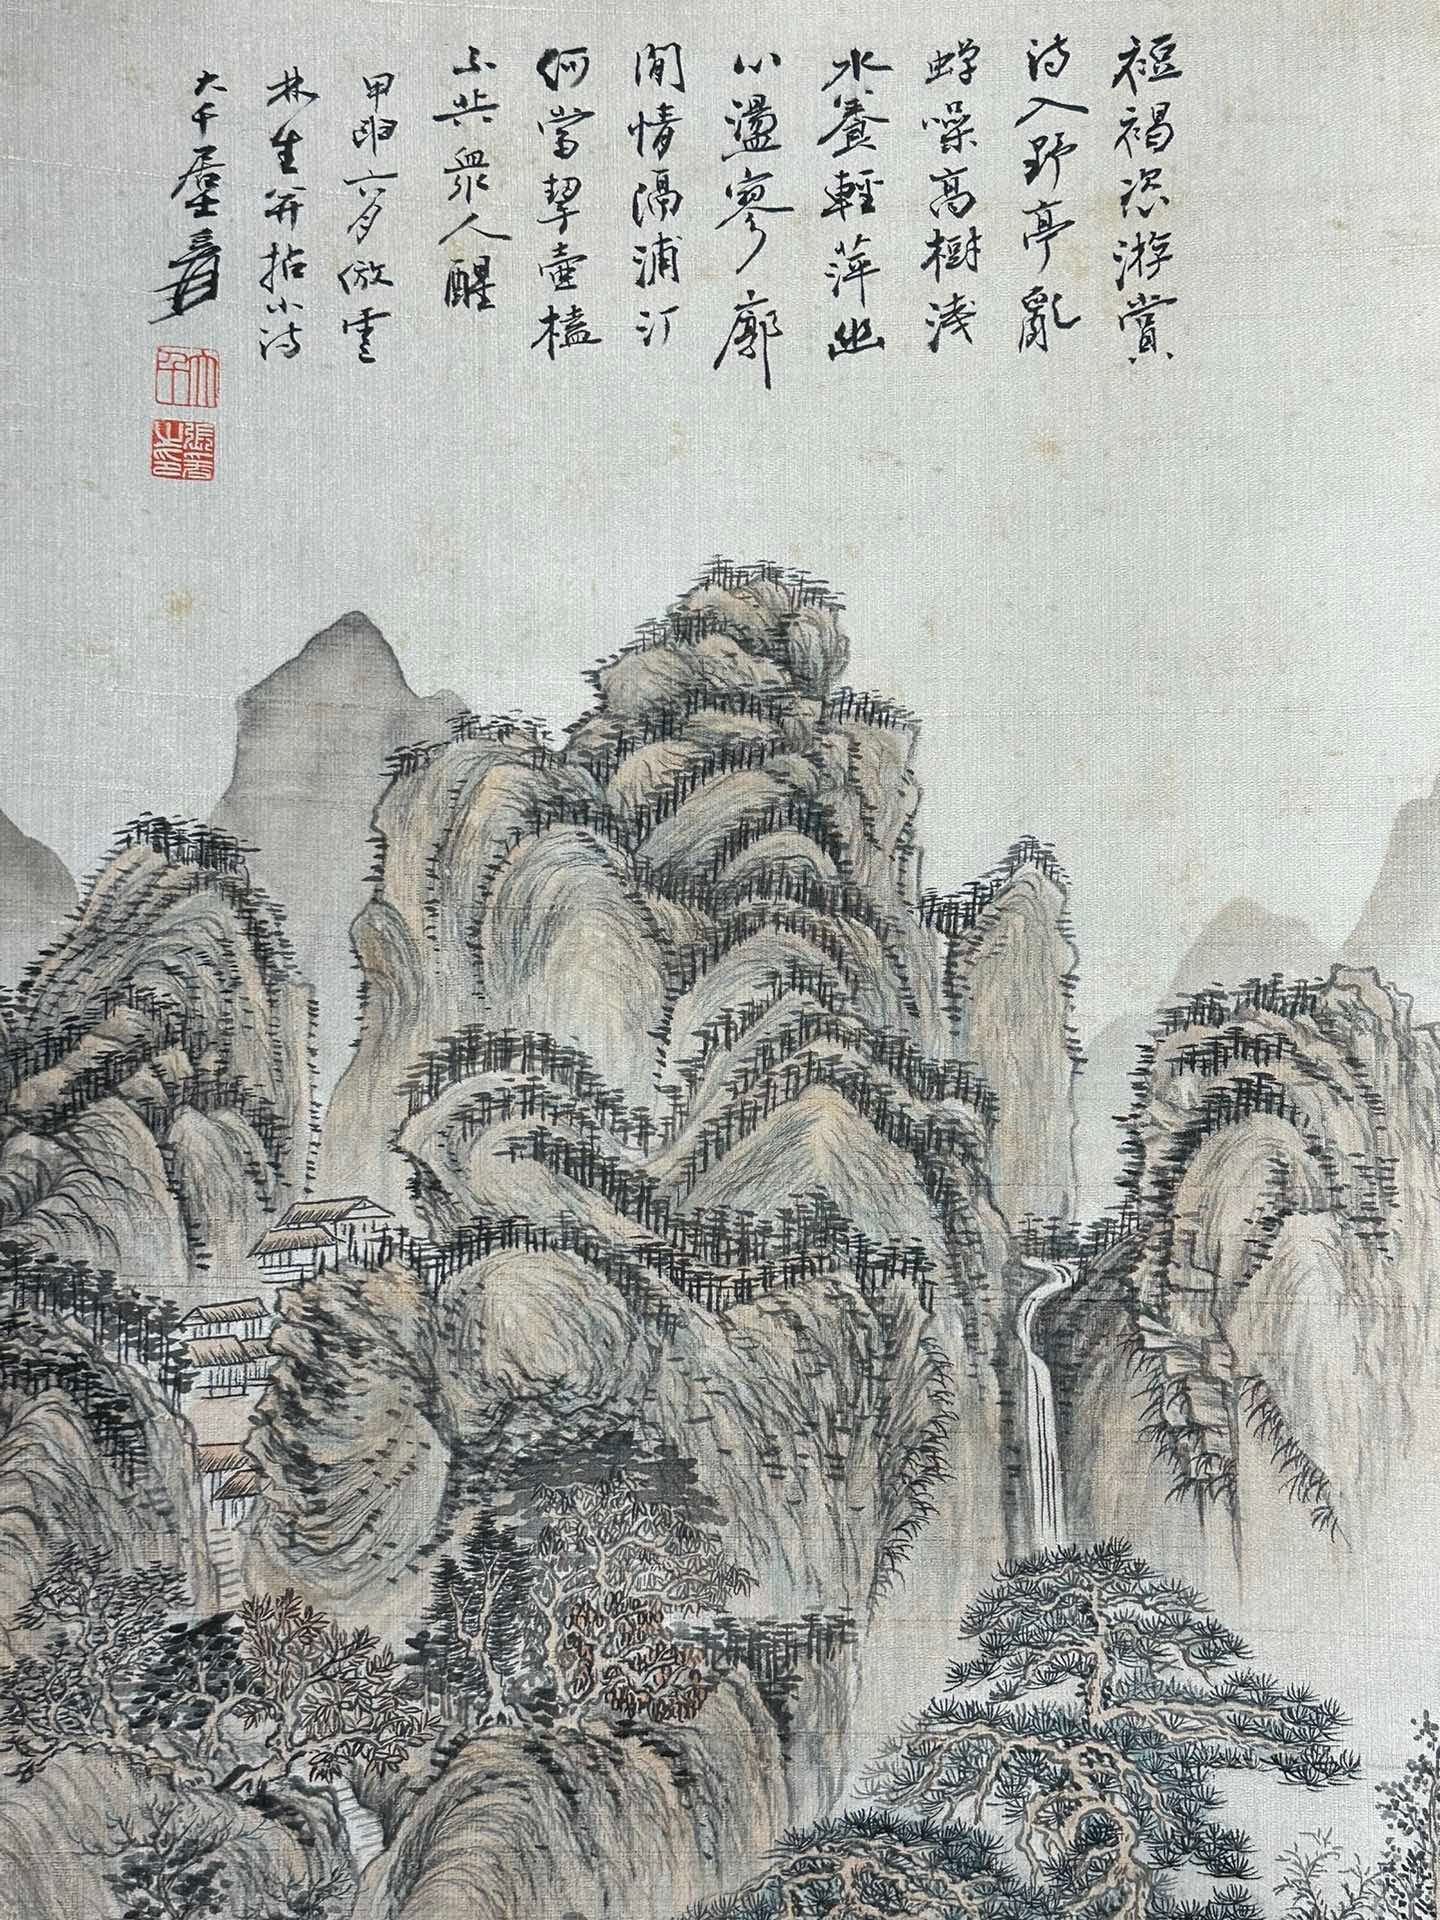 短褐恣游賞
詩入野亭亂
蟬噪高樹淺
水養輕萍幽
心盪寥廓
閒情隔浦汀
何當挈壺榼
不共衆人醒
甲申六月倣雲
林生并拈小詩
大千居士爰
大千
張爰之印